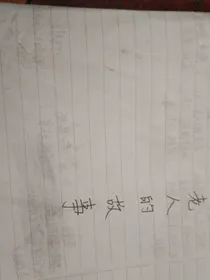 老人的故事